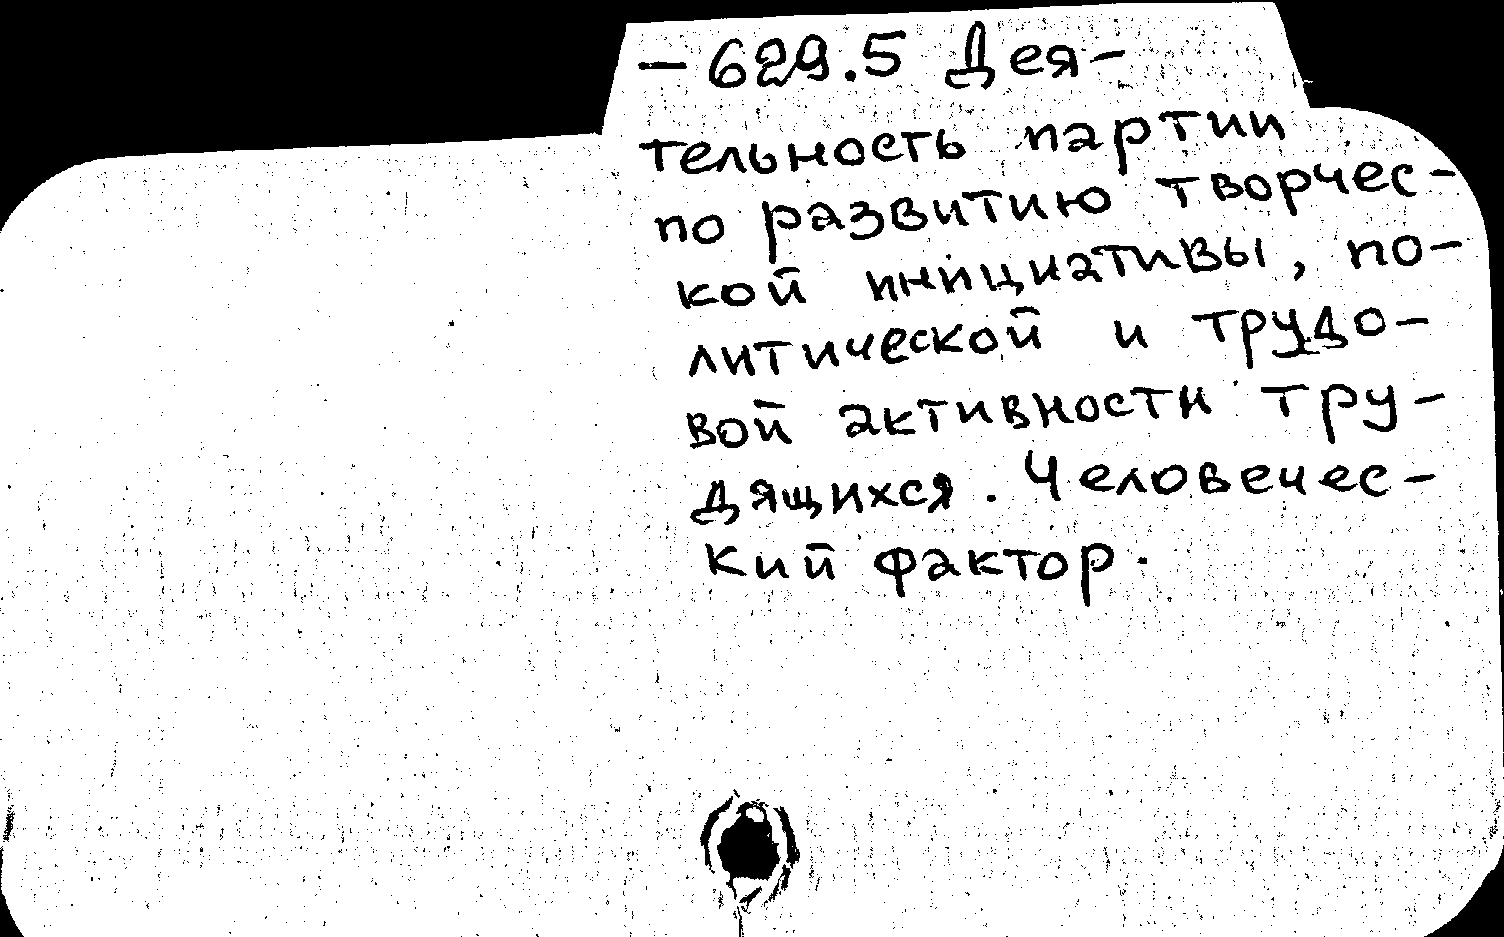 – 629.5 Дея-
тельность партии
по развитию творчес-
кой инициативы, по-
литической и трудо-
вой активности тру-
дящихся. Человечес-
кий фактор.